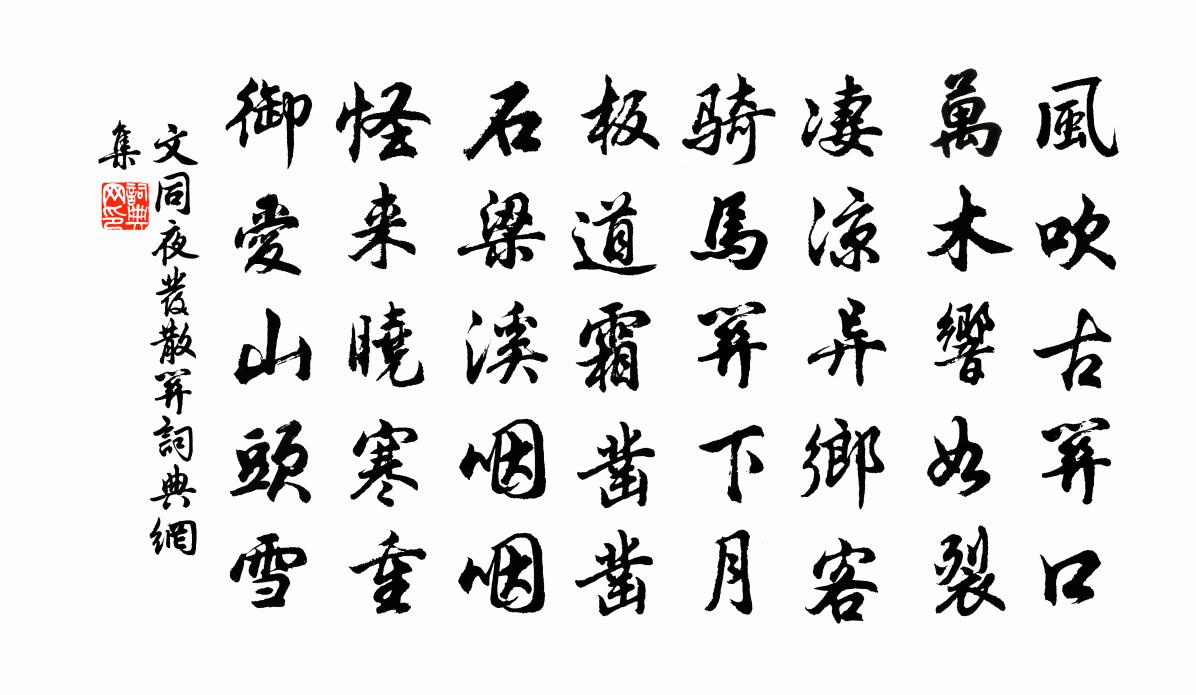 風吹古關口
萬木響如裂
凄凉异鄉客
騎馬關下月
板道霜凿凿
石梁溪咽咽
怪来曉寒重
御愛山頭雪
文同夜發散關詞典網
集
詞典
网印